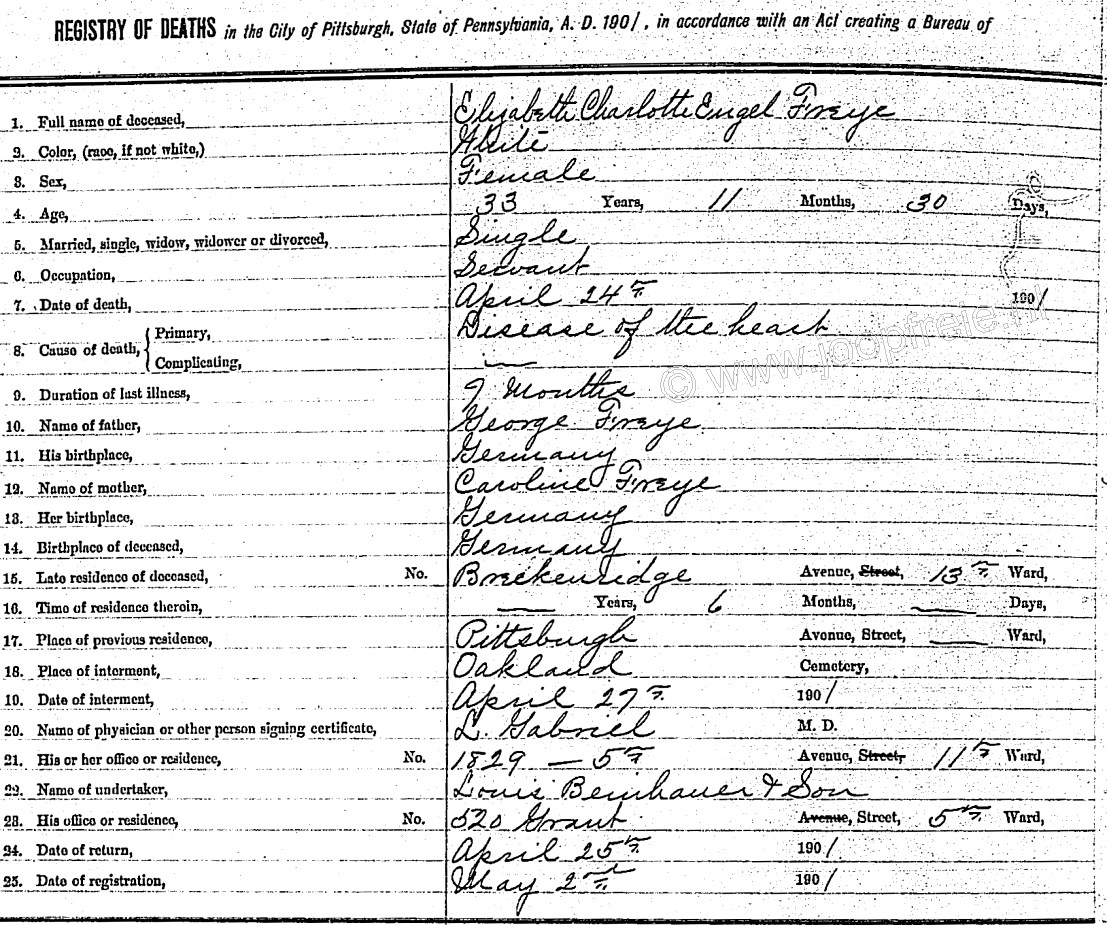 REGISTRY OF DEATHS in the City of Pittsburgh, State of Pennsylvania, A. D. 1901, in accordance with an Act creating a Bureau of
1. Full name of deceased, Elizabeth Charlotte Engel Freye
2. Color, (race, if not white,) White
3. Sex, Female
4. Age, 33 Years, 11 Months, 30 Days,
5. Married, single, widow, widower or divorced, Single
6. Occupation, Servant
7. Date of death, April 24th 1901
8. Cause of death, { Primary, Disease of the heart
Complicating, —
9. Duration of last illness, 9 Months
10. Name of father, George Freye
11. His birthplace, Germany
12. Name of mother, Caroline Freye
13. Her birthplace, Germany
14. Birthplace of deceased, Germany
15. Late residence of deceased, No. Breckenridge Avenue, Street, 13th Ward,
16. Time of residence therein, — Years, 6 Months, — Days,
17. Place of previous residence, Pittsburgh Avenue, Street, — Ward,
18. Place of interment, Oakland Cemetery,
19. Date of interment, April 27th 1901
20. Name of physician or other person signing certificate, L. Gabriel M. D.
21. His or her office or residence, No. 1829 — 5th Avenue, Street, 11th Ward,
22. Name of undertaker, Louis Beinhauer & Son
23. His office or residence, No. 520 Grant Avenue, Street, 5th Ward,
24. Date of return, April 25th 1901
25. Date of registration, May 2nd 1901
© www.joopfreie.nl